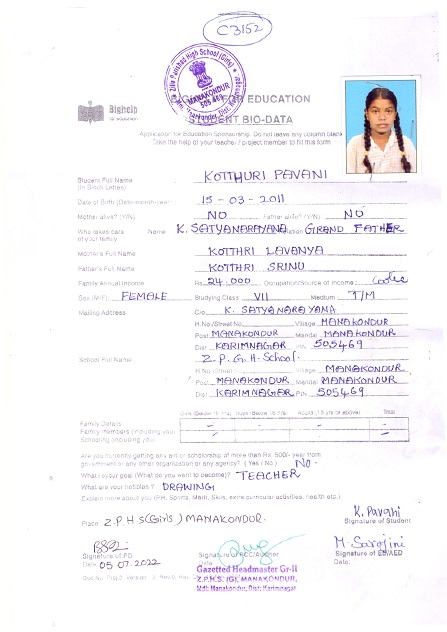 C3152
Zilla Parishad High School (Girls)
MANAKONDUR
505 469
Bighelp
for education
EDUCATION
BIO-DATA
Application for Education Sponsorship. Do not leave any column blank
Take the help of your teacher / project member to fill this form.
Student Full Name KOTTHURI PAVANI
(In Block Letters)
Date of Birth (Date-month-year) 15-03-2011
Mother alive? (Y/N) NO Father alive? (Y/N) NO
Who takes care Name K. SATYANARAYANA Relation GRAND FATHER
of your family
Mother's Full Name KOTHRI LAVANYA
Father's Full Name KOTHRI SRINU
Family Annual Income Rs. 24,000 Occupation/Source of Income
Sex (M/F) FEMALE Studying Class VII Medium T/M
Mailing Address C/o K. SATYANARAYANA
H.No/Street No. Village MANAKONDUR
Post MANAKONDUR Mandal MANAKONDUR
Dist KARIMNAGAR PIN 505469
School Full Name Z.P.G.H-School
H.No/Street Village MANAKONDUR
Post MANAKONDUR Mandal MANAKONDUR
Dist KARIMNAGAR PIN 505469
Total
Family Details
Family members (including you)
Schooling (including you)
Are you currently getting any aid or scholarship of more than Rs. 500/- year from
government or any other organization or any agency? (Yes / No) NO.
What is your goal (What do you want to become)? TEACHER
What are your hobbies? DRAWING
Explain more about you (P.H, Sports, Merit, Skills, extra curricular activities, health etc.)
Place Z.P.H.S(Girls) MANAKONDUR.
K. Pavani
Signature of Student
Signature of PD
Date: 05.07.2022
M. Sarojini
Date:
Gazetted Headmaster Gr-II
Z.P.H.S. (G), MANAKONDUR,
Mdl: Manakondur, Dist: Karimnagar